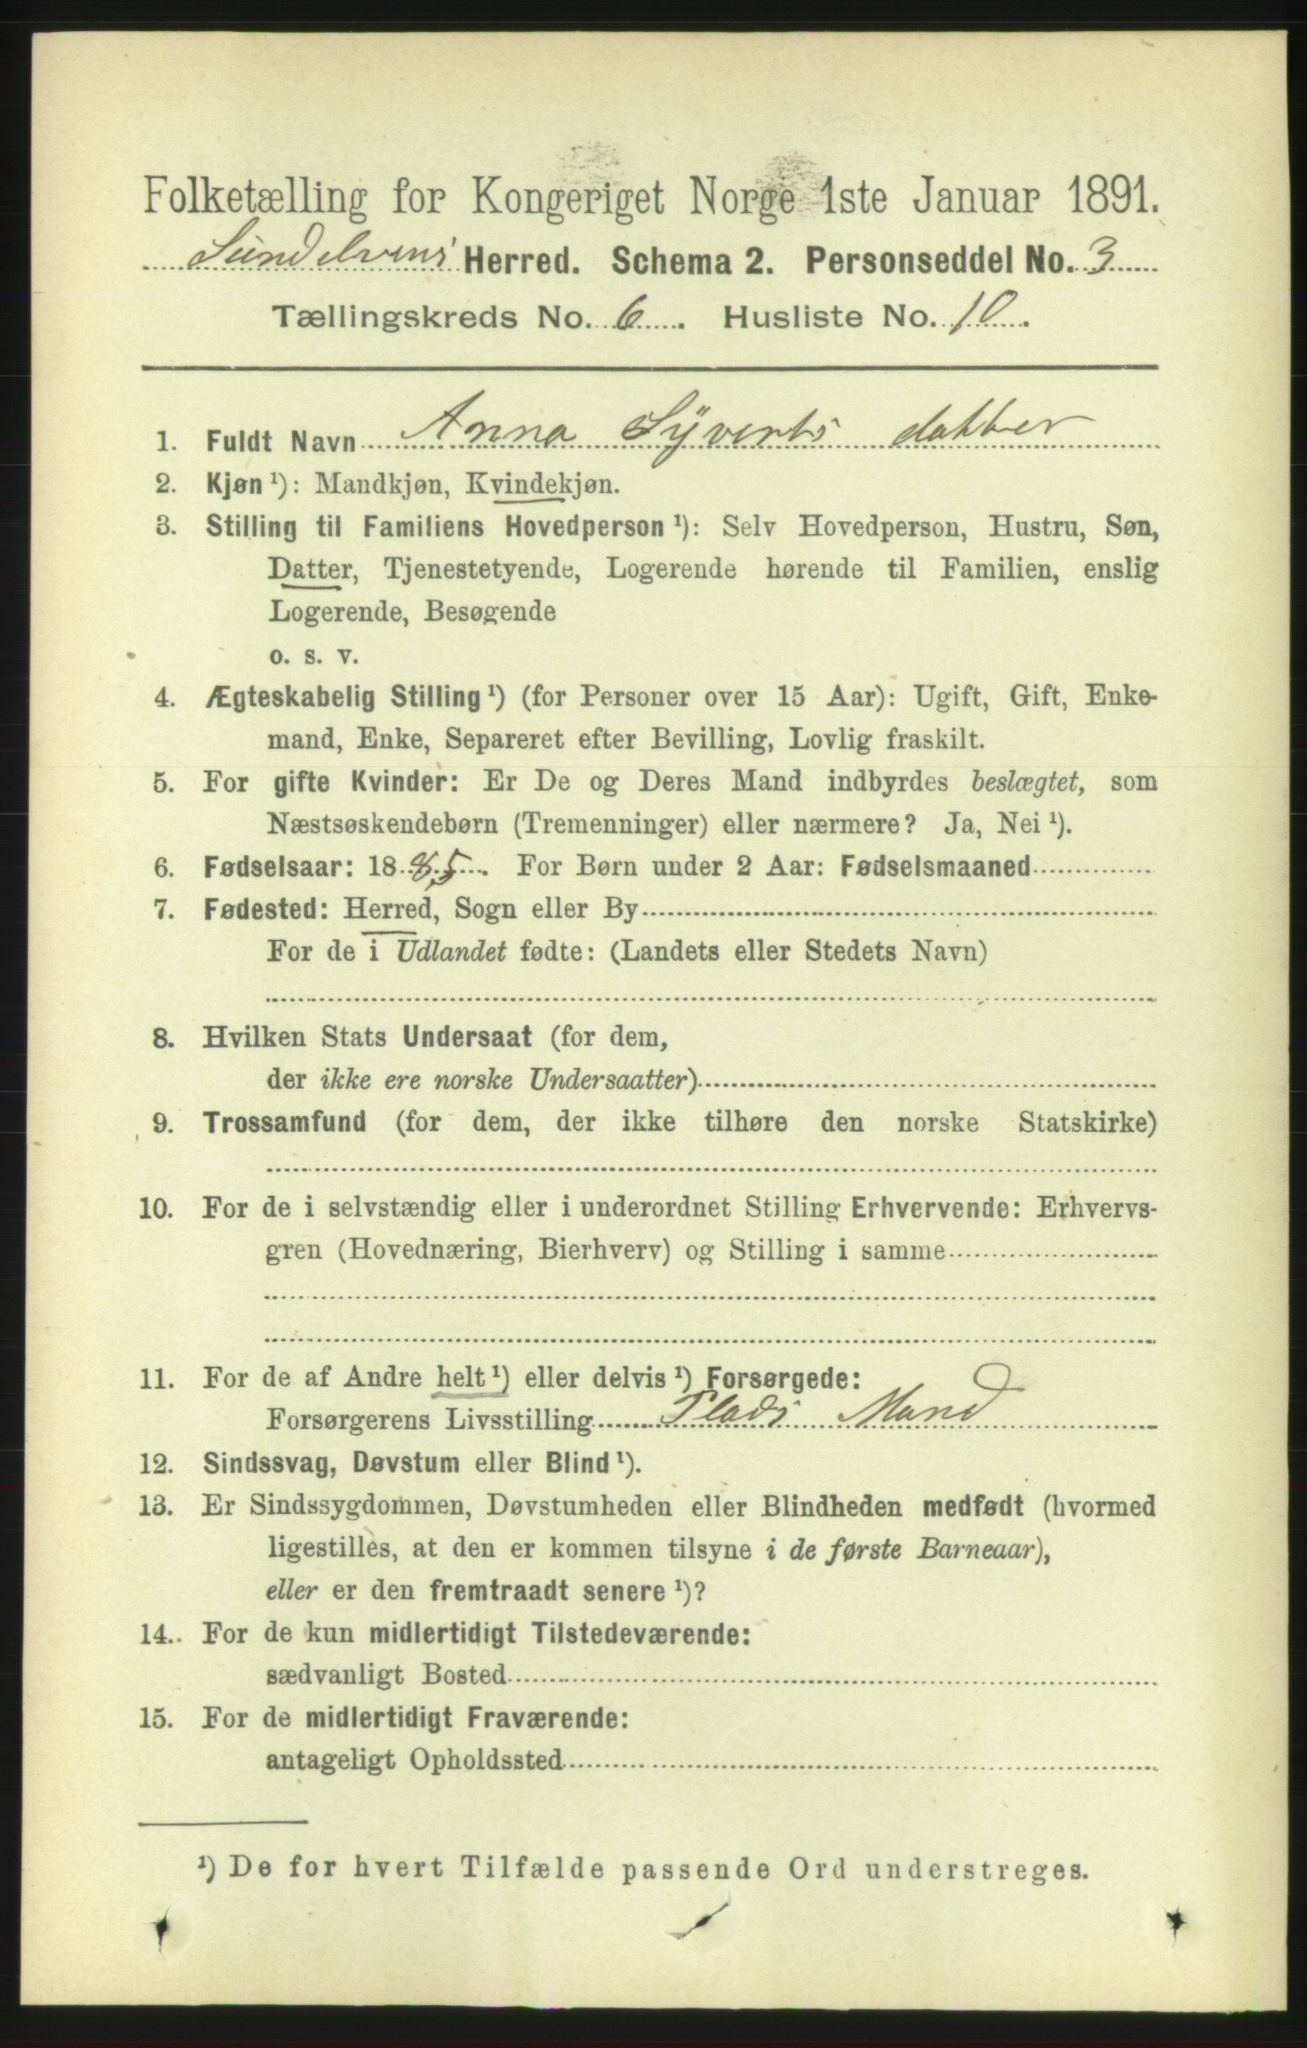 Folketælling for Kongeriget Norge 1ste Januar 1891.
Sundelvens Herred. Schema 2. Personseddel No. 3
Tællingskreds No. 6. Husliste No. 10.
1. Fuldt Navn Anna Syverts datter
2. Kjøn ¹): Mandkjøn, Kvindekjøn.
3. Stilling til Familiens Hovedperson ¹): Selv Hovedperson, Hustru, Søn,
Datter, Tjenestetyende, Logerende hørende til Familien, enslig
Logerende, Besøgende
o. s. v.
4. Ægteskabelig Stilling ¹) (for Personer over 15 Aar): Ugift, Gift, Enke-
mand, Enke, Separeret efter Bevilling, Lovlig fraskilt.
5. For gifte Kvinder: Er De og Deres Mand indbyrdes beslægtet, som
Næstsøskendebørn (Tremenninger) eller nærmere? Ja, Nei ¹).
6. Fødselsaar: 1885. For Børn under 2 Aar: Fødselsmaaned
7. Fødested: Herred, Sogn eller By
For de i Udlandet fødte: (Landets eller Stedets Navn)
8. Hvilken Stats Undersaat (for dem,
der ikke ere norske Undersaatter)
9. Trossamfund (for dem, der ikke tilhøre den norske Statskirke)
10. For de i selvstændig eller i underordnet Stilling Erhvervende: Erhvervs-
gren (Hovednæring, Bierhverv) og Stilling i samme
11. For de af Andre helt ¹) eller delvis ¹) Forsørgede:
Forsørgerens Livsstilling Plads Mand
12. Sindssvag, Døvstum eller Blind ¹).
13. Er Sindssygdommen, Døvstumheden eller Blindheden medfødt (hvormed
ligestilles, at den er kommen tilsyne i de første Barneaar),
eller er den fremtraadt senere ¹)?
14. For de kun midlertidigt Tilstedeværende:
sædvanligt Bosted
15. For de midlertidigt Fraværende:
antageligt Opholdssted
¹) De for hvert Tilfælde passende Ord understreges.